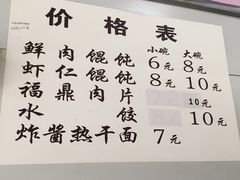 价格表
小碗 大碗
鲜肉馄饨 6元 8元
虾仁馄饨 8元 10元
福鼎肉片 10元
水饺 10元
炸酱热干面 7元